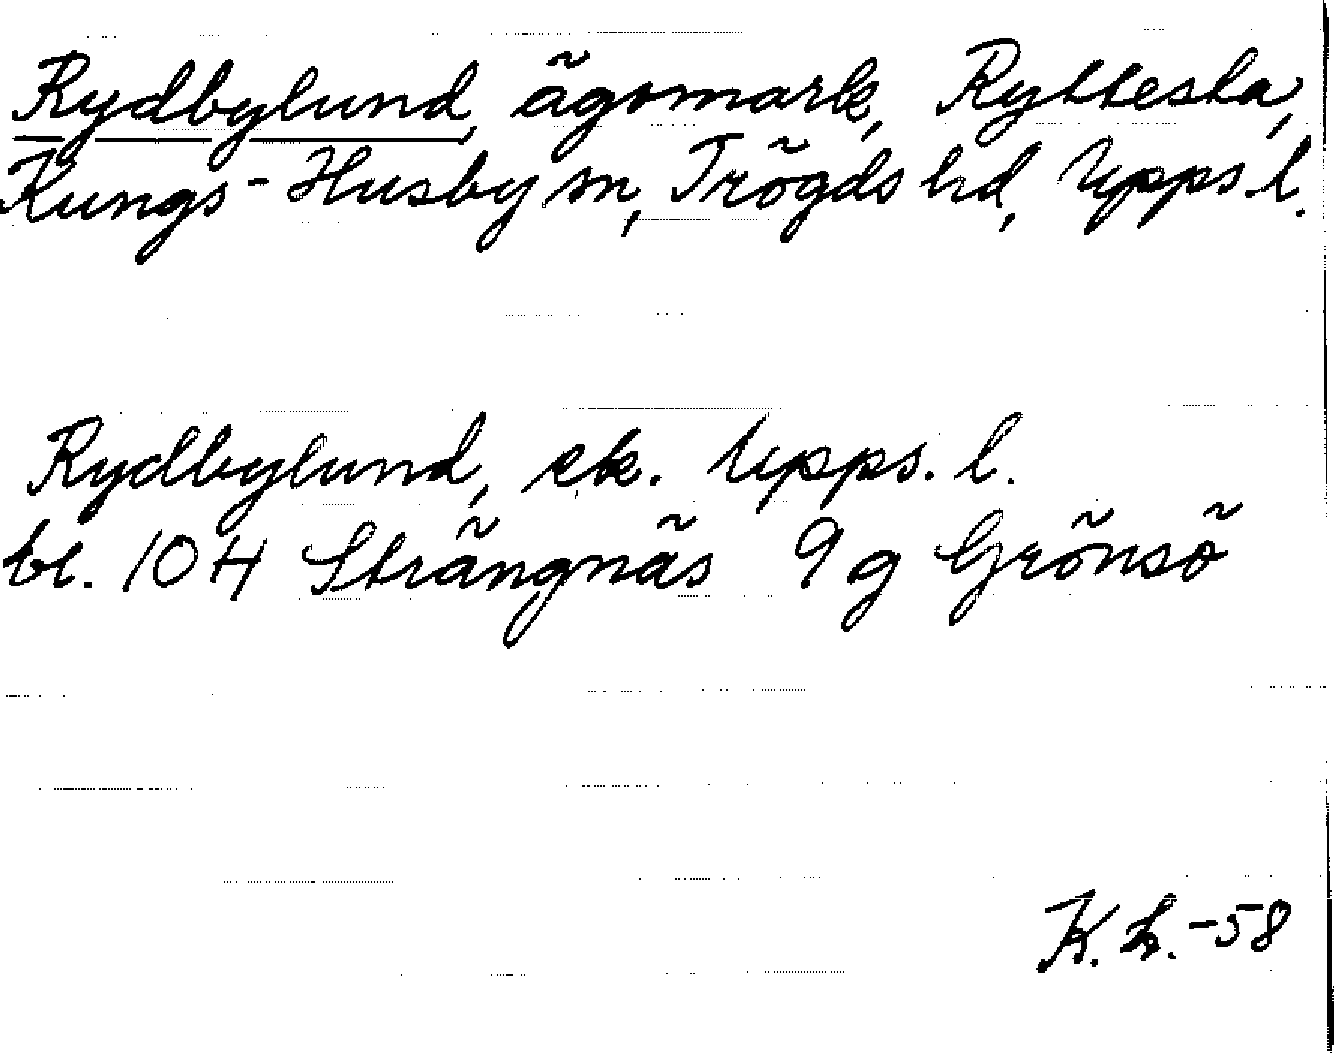 Rydbylund, ägomark, Ryttesta,
Kungs-Husby sn, Trögds hd, Upps. l.
Rydbylund, ek. Upps. l.
bl. 104 Strängnäs 9 g Grönsö
K. L. -58